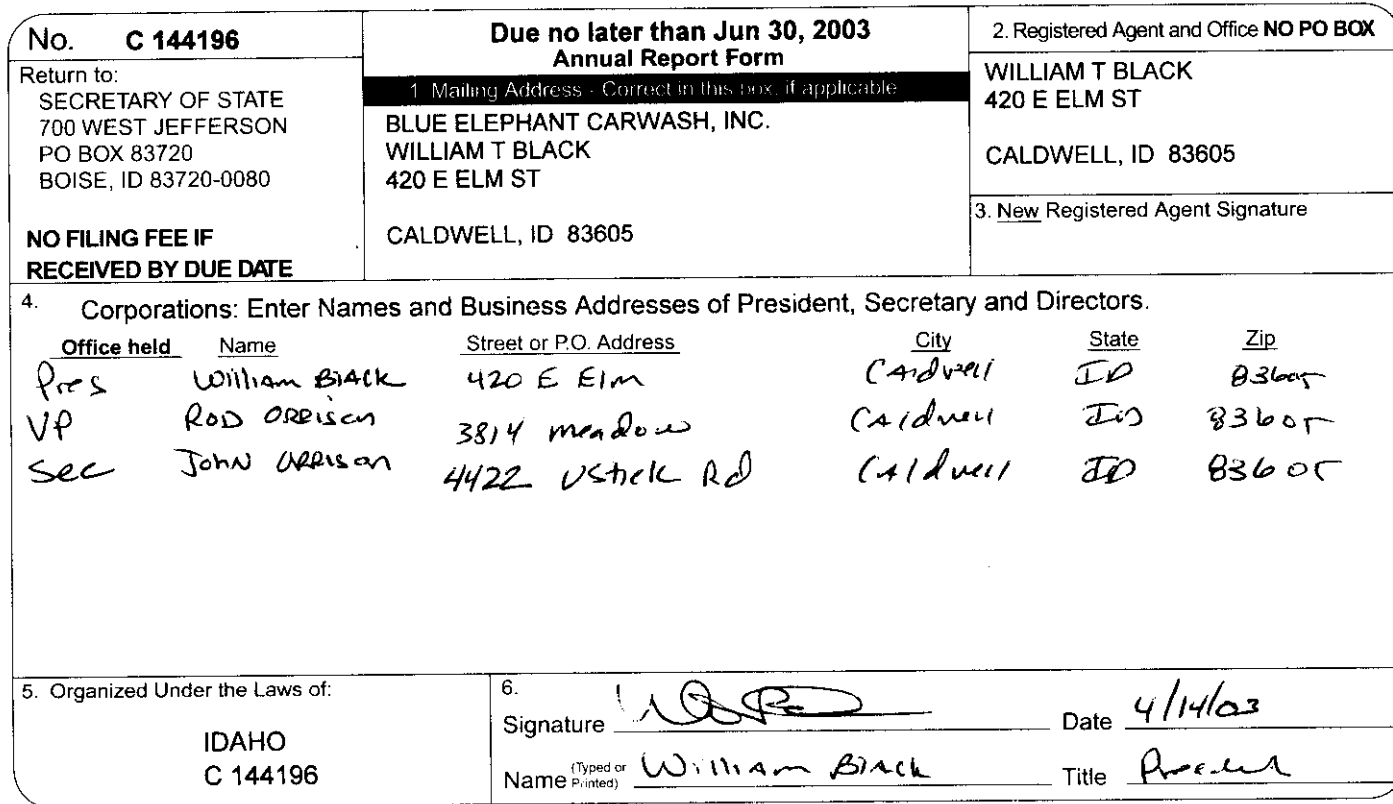 No. C 144196
Return to:
SECRETARY OF STATE
700 WEST JEFFERSON
PO BOX 83720
BOISE, ID 83720-0080
NO FILING FEE IF
RECEIVED BY DUE DATE
Due no later than Jun 30, 2003
Annual Report Form
1 Mailing Address - Correct in this box, if applicable
BLUE ELEPHANT CARWASH, INC.
WILLIAM T BLACK
420 E ELM ST
CALDWELL, ID 83605
2. Registered Agent and Office NO PO BOX
WILLIAM T BLACK
420 E ELM ST
CALDWELL, ID 83605
3. New Registered Agent Signature
4. Corporations: Enter Names and Business Addresses of President, Secretary and Directors.
Office held Name Street or P.O. Address City State Zip
Pres William Black 420 E Elm Caldwell ID 83605
VP ROD ORRISON 3814 meadow Caldwell ID 83605
Sec John ORRISON 4422 Ustick Rd Caldwell ID 83605
5. Organized Under the Laws of:
IDAHO
C 144196
6.
Signature Date 4/14/03
Name (Typed or Printed) William Black Title President